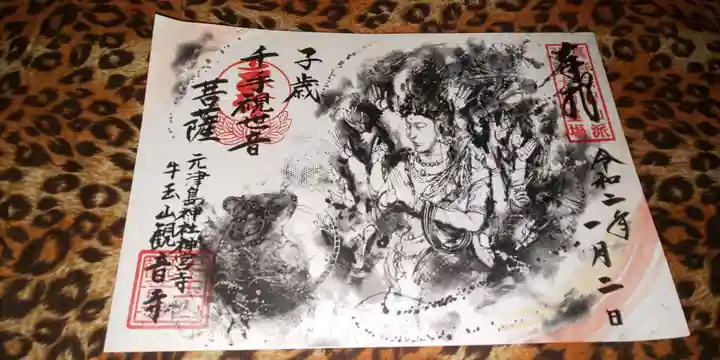 奉拝
令和二年
一月二日
子歳
千手観世音
菩薩
元津島神社神宮寺
牛玉山観音寺